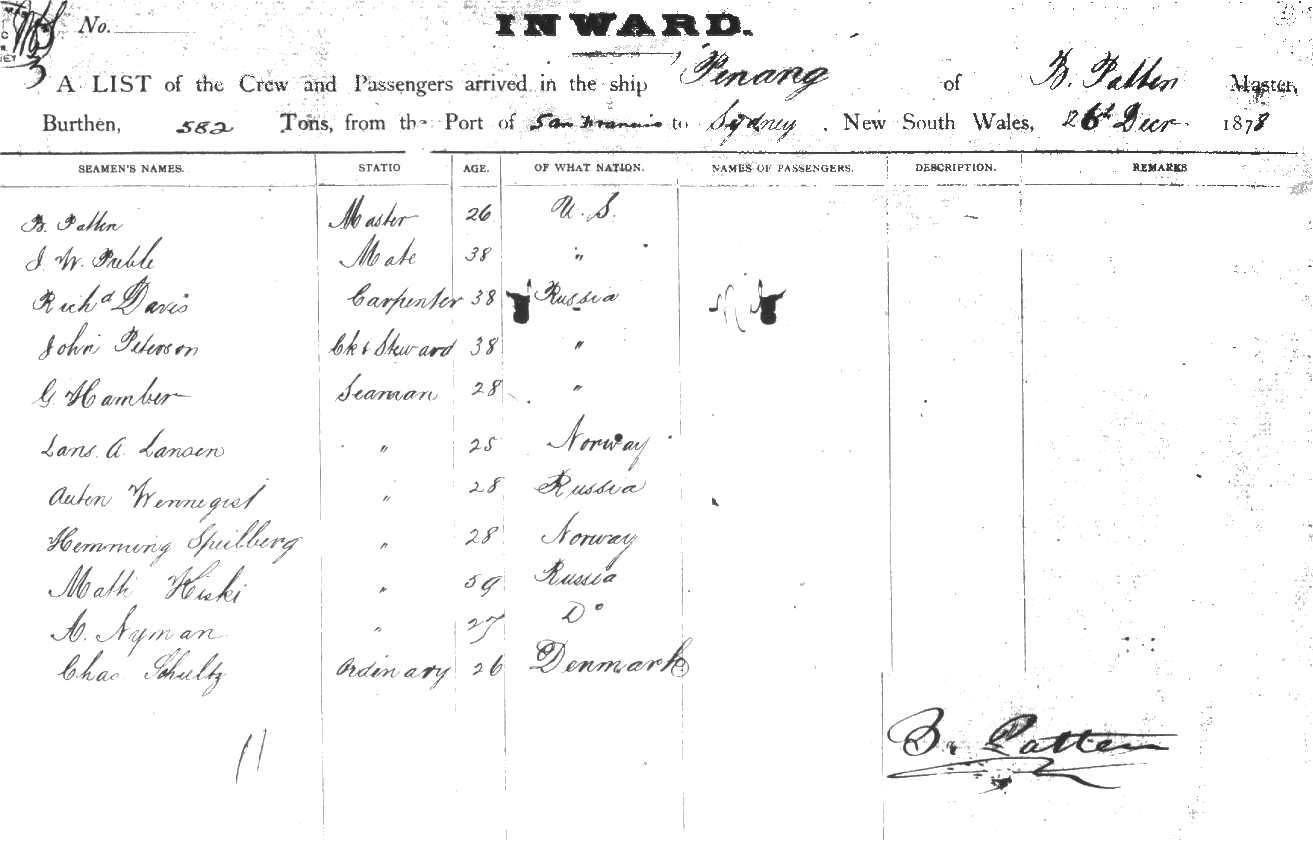 No.
INWARD.
3
A LIST of the Crew and Passengers arrived in the ship Penang of B. Patten Master,
Burthen, 582 Tons, from the Port of San Francis to Sydney, New South Wales, 26th Decr 1878
SEAMEN'S NAMES. STATIO AGE. OF WHAT NATION. NAMES OF PASSENGERS. DESCRIPTION. REMARKS
B. Patten Master 26 U. S.
J. W. Preble Mate 38 "
Richd Davis Carpenter 38 Russia Nil
John Peterson Ck & Steward 38 "
G Hamber Seaman 28 "
Lans. A. Lansen " 25 Norway
Auten Wennegist " 28 Russia
Hemming Speilberg " 28 Norway
Matti Kiski " 59 Russia
A. Nyman " 27 Do
Chas Schultz Ordinary 26 Denmark
11
B. Patten